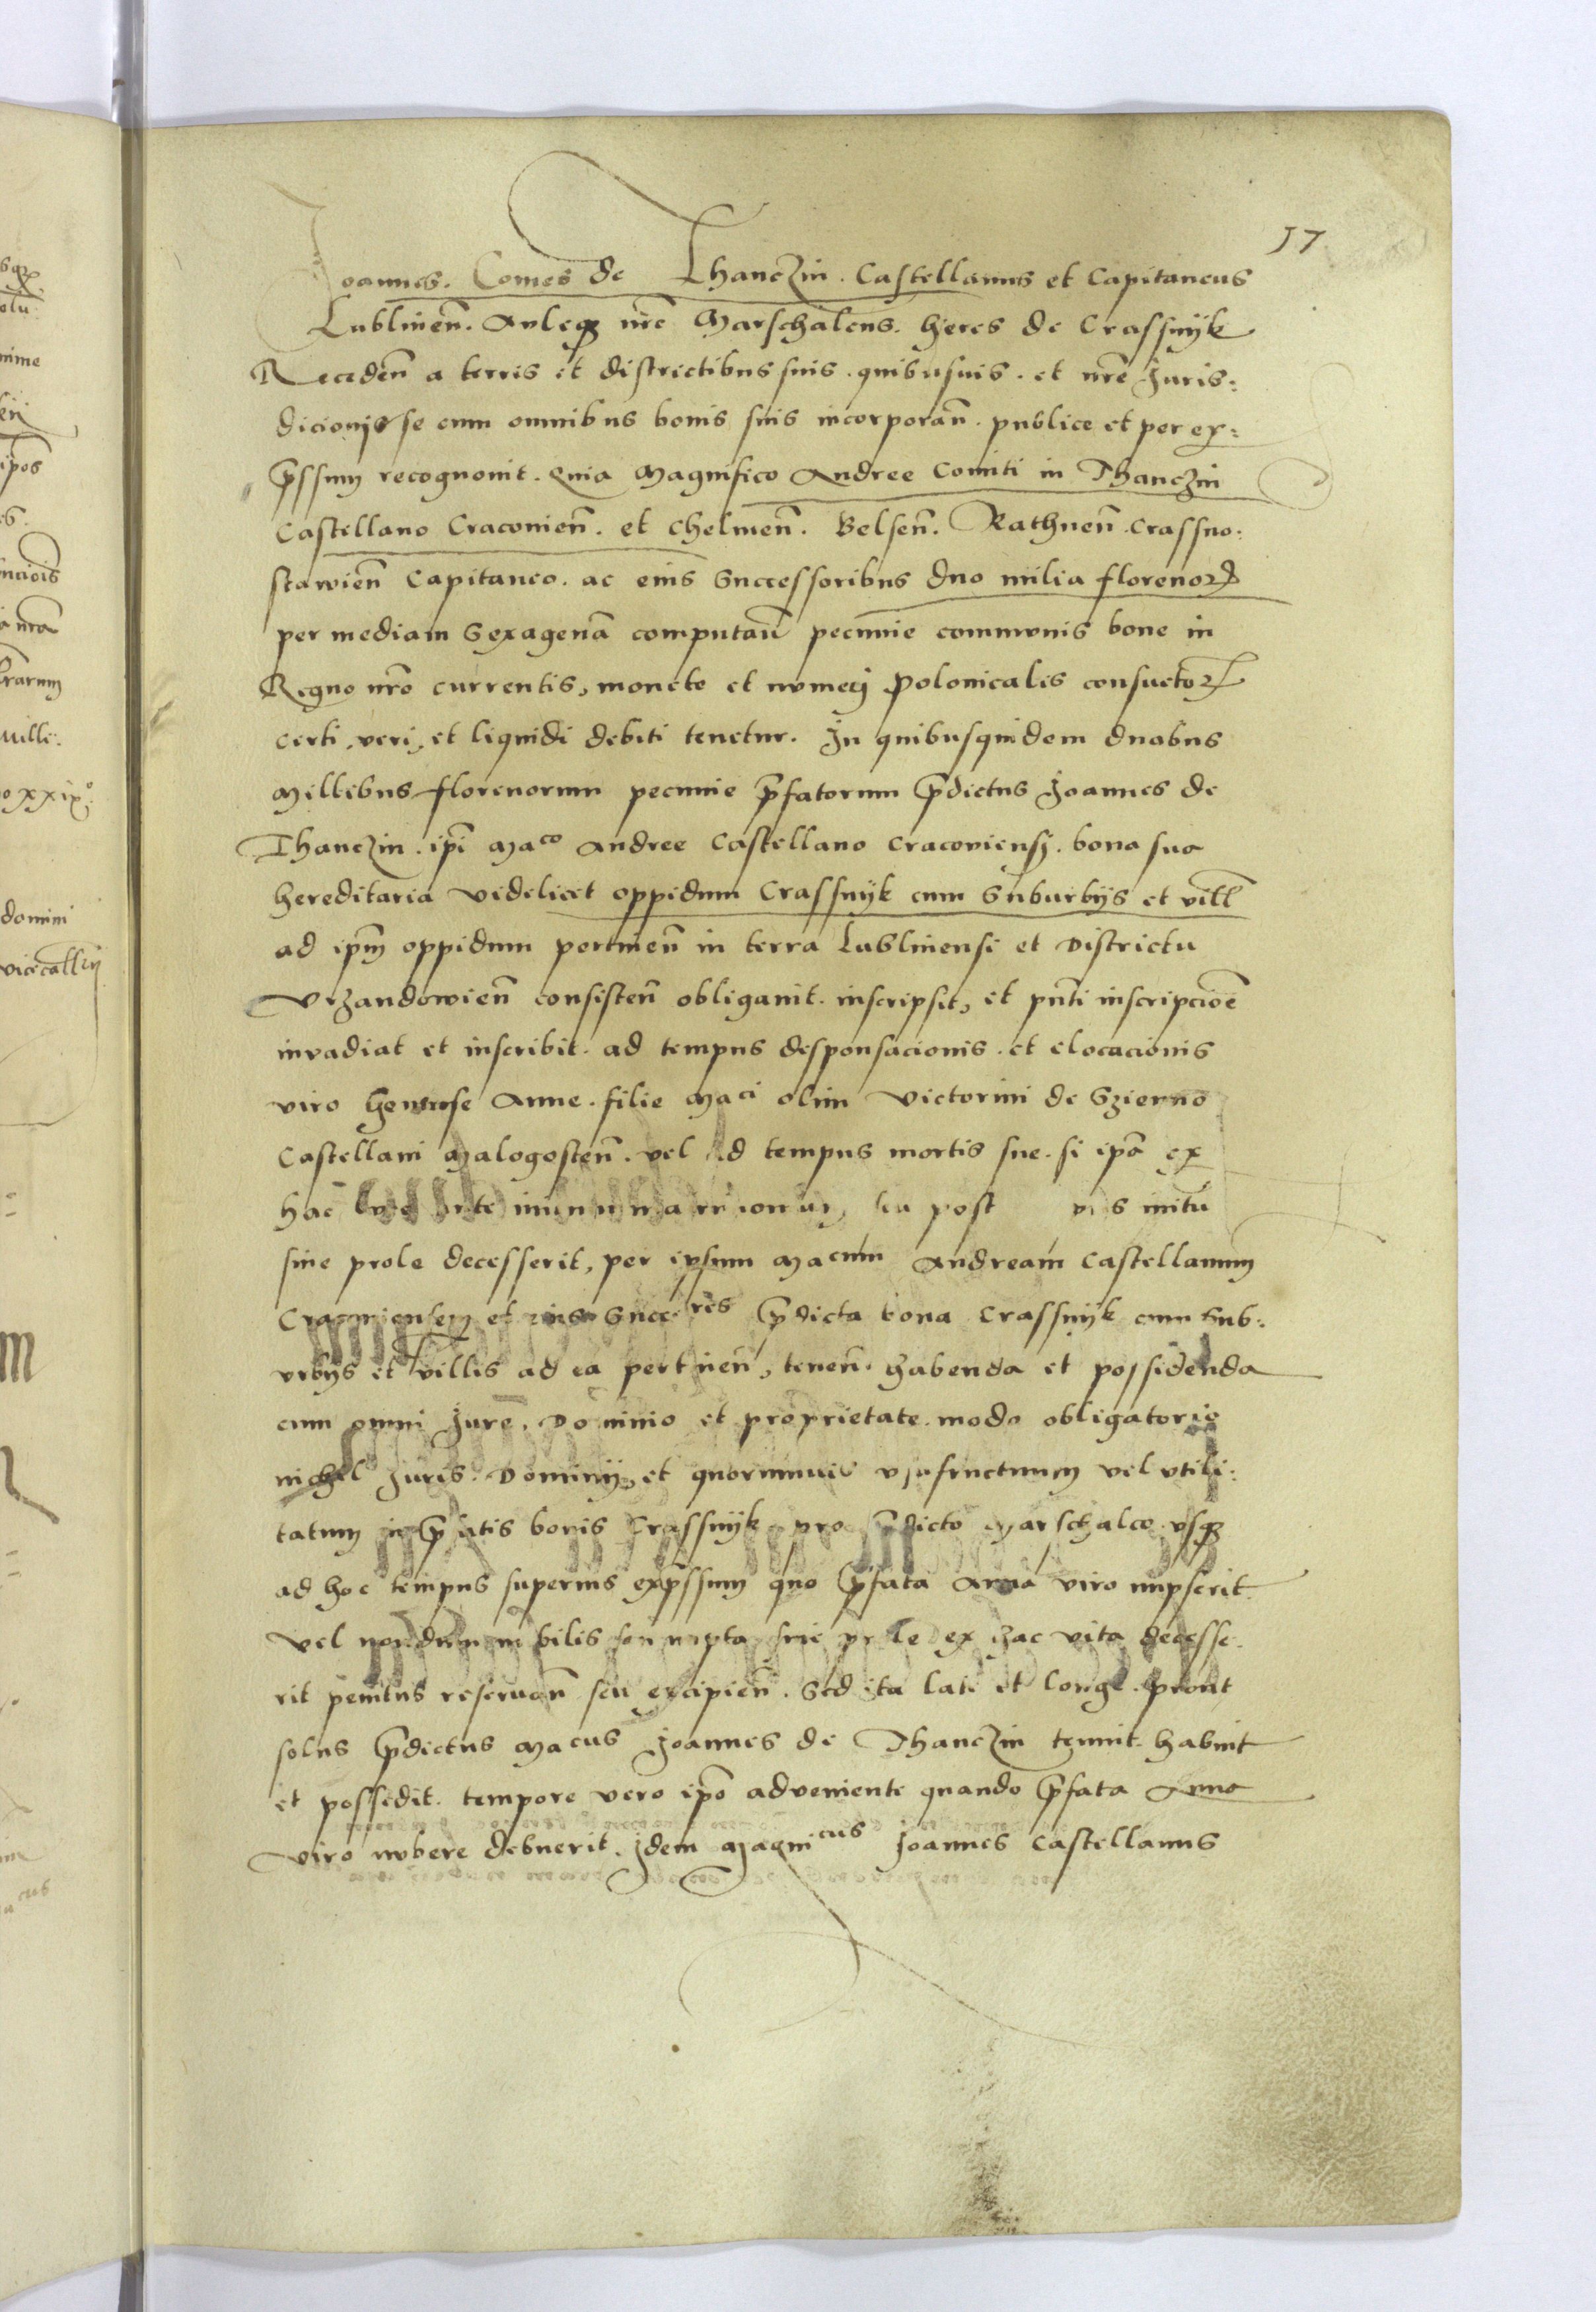 17
Joannes. Comes de Thanczin. Castellanus et Capitaneus
Lublinen̄. Auleqȝ nr̄e Marschalcus. heres de Crassnyk
Receden̄ a terris et districtibus suis. quibusuis. et nr̄e Juris:
dicionis se cum omnibus bonis suis incorporan̄. publice et per ex:
p̄ssum recognouit. Quia Magnifico Andree Comiti in Thanczin
Castellano Cracouien̄. et Chelmen̄. Belsen̄. Rathnen̄. Crassno:
stawien̄ Capitaneo. ac eius Successoribus duo milia florenoꝝ
per mediam Sexagenā computan̄ pecunie communis bone in
Regno nr̄o currentis, monete et numeri Polonicalis consuetoꝝ
certi, veri, et liquidi debiti tenetur. In quibusquidem duobus
Millibus florenorum pecunie p̄fatorum p̄dictus Joannes de
Thanczin. ip̄i Maco Andree Castellano Cracouiensi. bona sua
hereditaria videlicet oppidum Crassnyk cum Suburbijs et vill̄
ad ip̄m oppidum pertinen̄ in terra Lublinensi et Districtu
Vrzandowien̄ consisten̄ obligauit. inscripsit, et pn̄ti inscripcioē
invadiat et inscribit. ad tempus desponsacionis. et elocacionis
viro Generose Anne. filie Maci olim Victorini de Szienno
Castellani Malogosten̄. vel ad tempus mortis sue. si ipā ex
hac post initū
sine prole decesserit, per ipsum Macum Andream Castellanum
Cracouiensem et eius Succeres p̄dicta bona Crassnyk cum Sub:
urbijs et villis ad ea pertinen̄, tenen̄. habenda et possidenda
cum omni Jure, Dominio et proprietate. modo obligatorio
nichil Juris. Dominij, et quorumuis vsufructuum vel vtili:
tatum in p̄fatis bonis Crassnyk pro p̄dicto Marschalco. vsqȝ
ad hoc tempus superius exp̄ssum quo p̄fata Anna viro nupserit.
Vel nondum nubilis seu nupta sine prole ex hac vita decesse.
rit penitus reseruan̄ seu excipien̄. Sed ita late et longe. prout
solus p̄dictus Macus Joannes de Thanczin tenuit. habuit
et possedit. tempore vero ipō adveniente quando p̄fata Anna
viro nubere debuerit. Idem Magnicus Joannes Castellanus